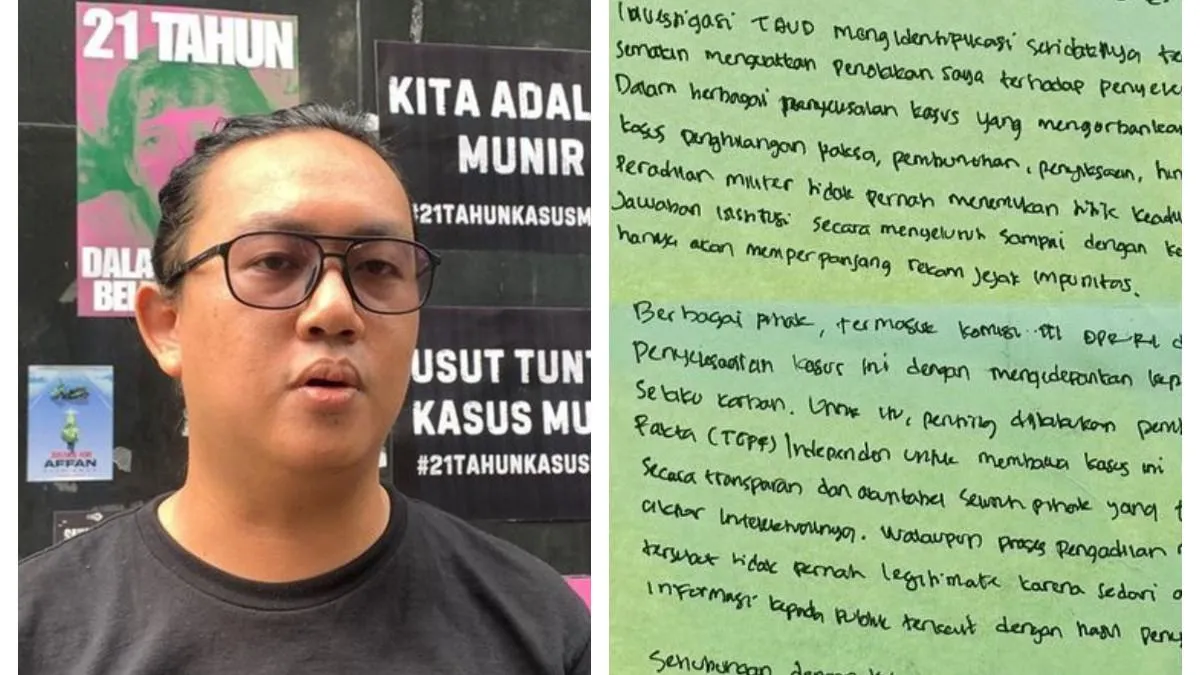 21 TAHUN
DALA
BE
KITA ADAL
MUNIR
#21TAHUNKASUSM
USUT TUNT
KASUS MU
#21TAHUNKASUS
AFFAN
Investigasi TAUD mengidentifikasi setidaknya
Semakin menguatkan penolakan saya terhadap
Dalam berbagai kasus yang mengorbankan
kasus penghilangan paksa, pembunuhan, penyiksaan,
Peradilan militer tidak pernah menemukan titik
Jawaban institusi secara menyeluruh sampai dengan
hanya akan memperpanjang rekam jejak impunitas.
Berbagai pihak, termasuk komisi III DPR RI
penyelesaian kasus ini dengan mengedepankan
Selaku korban. Untuk itu, penting dilakukan
Fakta (TGPF) Independen untuk membawa kasus ini
Secara transparan dan akuntabel seluruh pihak yang
aktor intelektualnya. Walaupun proses pengadilan
tersebut tidak pernah legitimate karena sedari
Informasi kepada publik tersebut dengan hasil
Sehubungan dengan